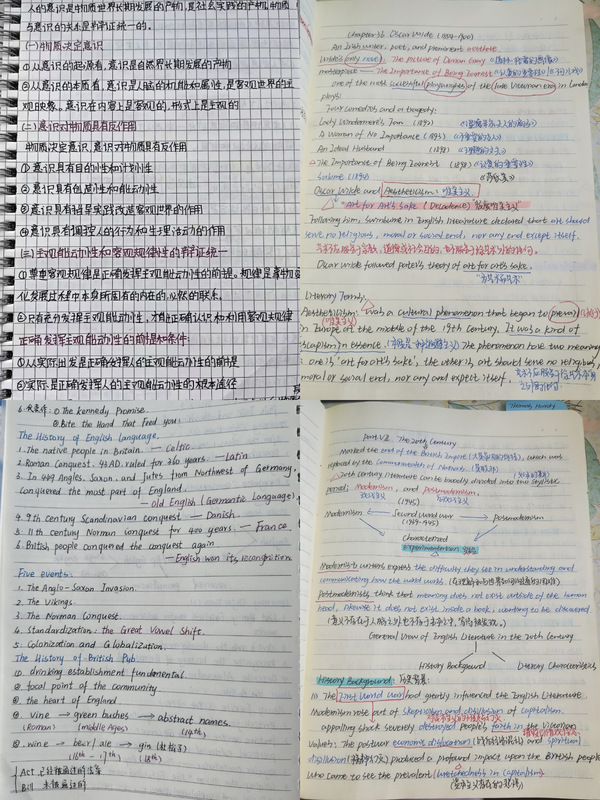 人的意识是物质世界长期发展的产物,是社会实践的产物,物质
与意识的关系是辩证统一的。
(一)物质决定意识
①从意识的起源看,意识是自然界长期发展的产物
②从意识的本质看,意识是人脑的机能和属性,是客观世界的主
观映象。意识在内容上是客观的,形式上是主观的
(二)意识对物质具有反作用
物质决定意识,意识对物质具有反作用
①意识具有目的性和计划性
②意识具有创造性和能动性
③意识具有指导实践改造客观世界的作用
④意识具有调控人的行为和生理活动的作用
(三)主观能动性和客观规律性的辩证统一
①尊重客观规律是正确发挥主观能动性的前提。规律是事物变
化发展过程中本身所固有的内在的、必然的联系。
②只有充分发挥主观能动性,才能正确认识和利用客观规律
正确发挥主观能动性的前提和条件:
①从实际出发是正确发挥人的主观能动性的前提
②实践是正确发挥人的主观能动性的根本途径
Chapter 36 Oscar Wilde (1854-1900)
An Irish writer, poet, and prominent aesthete.
Wilde's only novel: The Picture of Dorian Gray
masterpiece — The Importance of Being Earnest
one of the most successful playwrights of the late Victorian era in London
plays:
Four comedies and a tragedy:
Lady Windermere's Fan (1892)
A Woman of No Importance (1893)
An Ideal Husband (1895)
△The Importance of Being Earnest (1895)
Salome (1893)
Oscar Wilde and Aestheticism: 唯美主义
"Art for Art's Sake" (Decadence)
Following him, Swinburne in English literature declared that art should
serve no religious, moral or social end, nor any end except itself.
Oscar Wilde followed Pater's theory of art for art's sake.
Literary Terms:
Aestheticism: was a cultural phenomenon that began to prevail
(唯美主义)
in Europe at the middle of the 19th century. It was a kind of
escapism in essence. The phenomenon have two meaning
one is 'art for art's sake', the other is art should serve no religious,
moral or social end, nor any end expect itself.
6. ① The Kennedy Promise.
② Bite the Hand That Feed you.
The History of English Language.
1. The native people in Britain. — Celtic
2. Roman Conquest. 43 AD. ruled for 360 years. — Latin
3. In 449 Angles, Saxon, and Jutes from Northwest of Germany,
conquered the most part of England.
— old English (Germantic Language)
4. 9th century Scandinavian conquest — Danish
5. 11th century Norman conquest for 400 years. — France.
6. British people conquered the conquest again
— English won its recongnition
Five events:
1. The Anglo-Saxon Invasion.
2. The Vikings.
3. The Norman Conquest.
4. Standardization: the Great Vowel Shift.
5. Colonization and Globalization.
The History of British Pub.
①. drinking establishment fundamental
②. focal point of the community
③. the heart of England
④. vine → green bushes → abstract names.
(Roman) (middle Ages) (14th)
⑤. wine → bear/ale → gin
(16th-17th) (18th)
Act
Bill
Thomas Hardy
Part VII The 20th Century
Marked the end of the British Empire, which was
replaced by the Commonwealth of Nations.
20th Century Literature can be broadly divided into two stylistic
period: Modernism, and postmodernism.
现代主义 (1945) 后现代主义
Modernism ← Second World War → Postmodernism
(1939-1945)
Characterized
Experimentation 实验
Modernist writers express the difficulty they see in understanding and
communicating how the world works.
Postmodernists think that meaning does not exist outside of the human
head, likewise it does not exist inside a book, wanting to be discovered.
General View of English Literature in the 20th Century
History Background Literary Characteristics
History Background: 历史背景
(1) The First World War had greatly influenced the English Literature.
Modernism rose out of skepticism and disillusion of capitalism.
appalling shock severely destroyed People's faith in the Victorian
Values. The postwar economic dislocation and spiritual
disillusion produced a profound impact upon the British people
who came to see the prevalent wretchedness in capitalism.